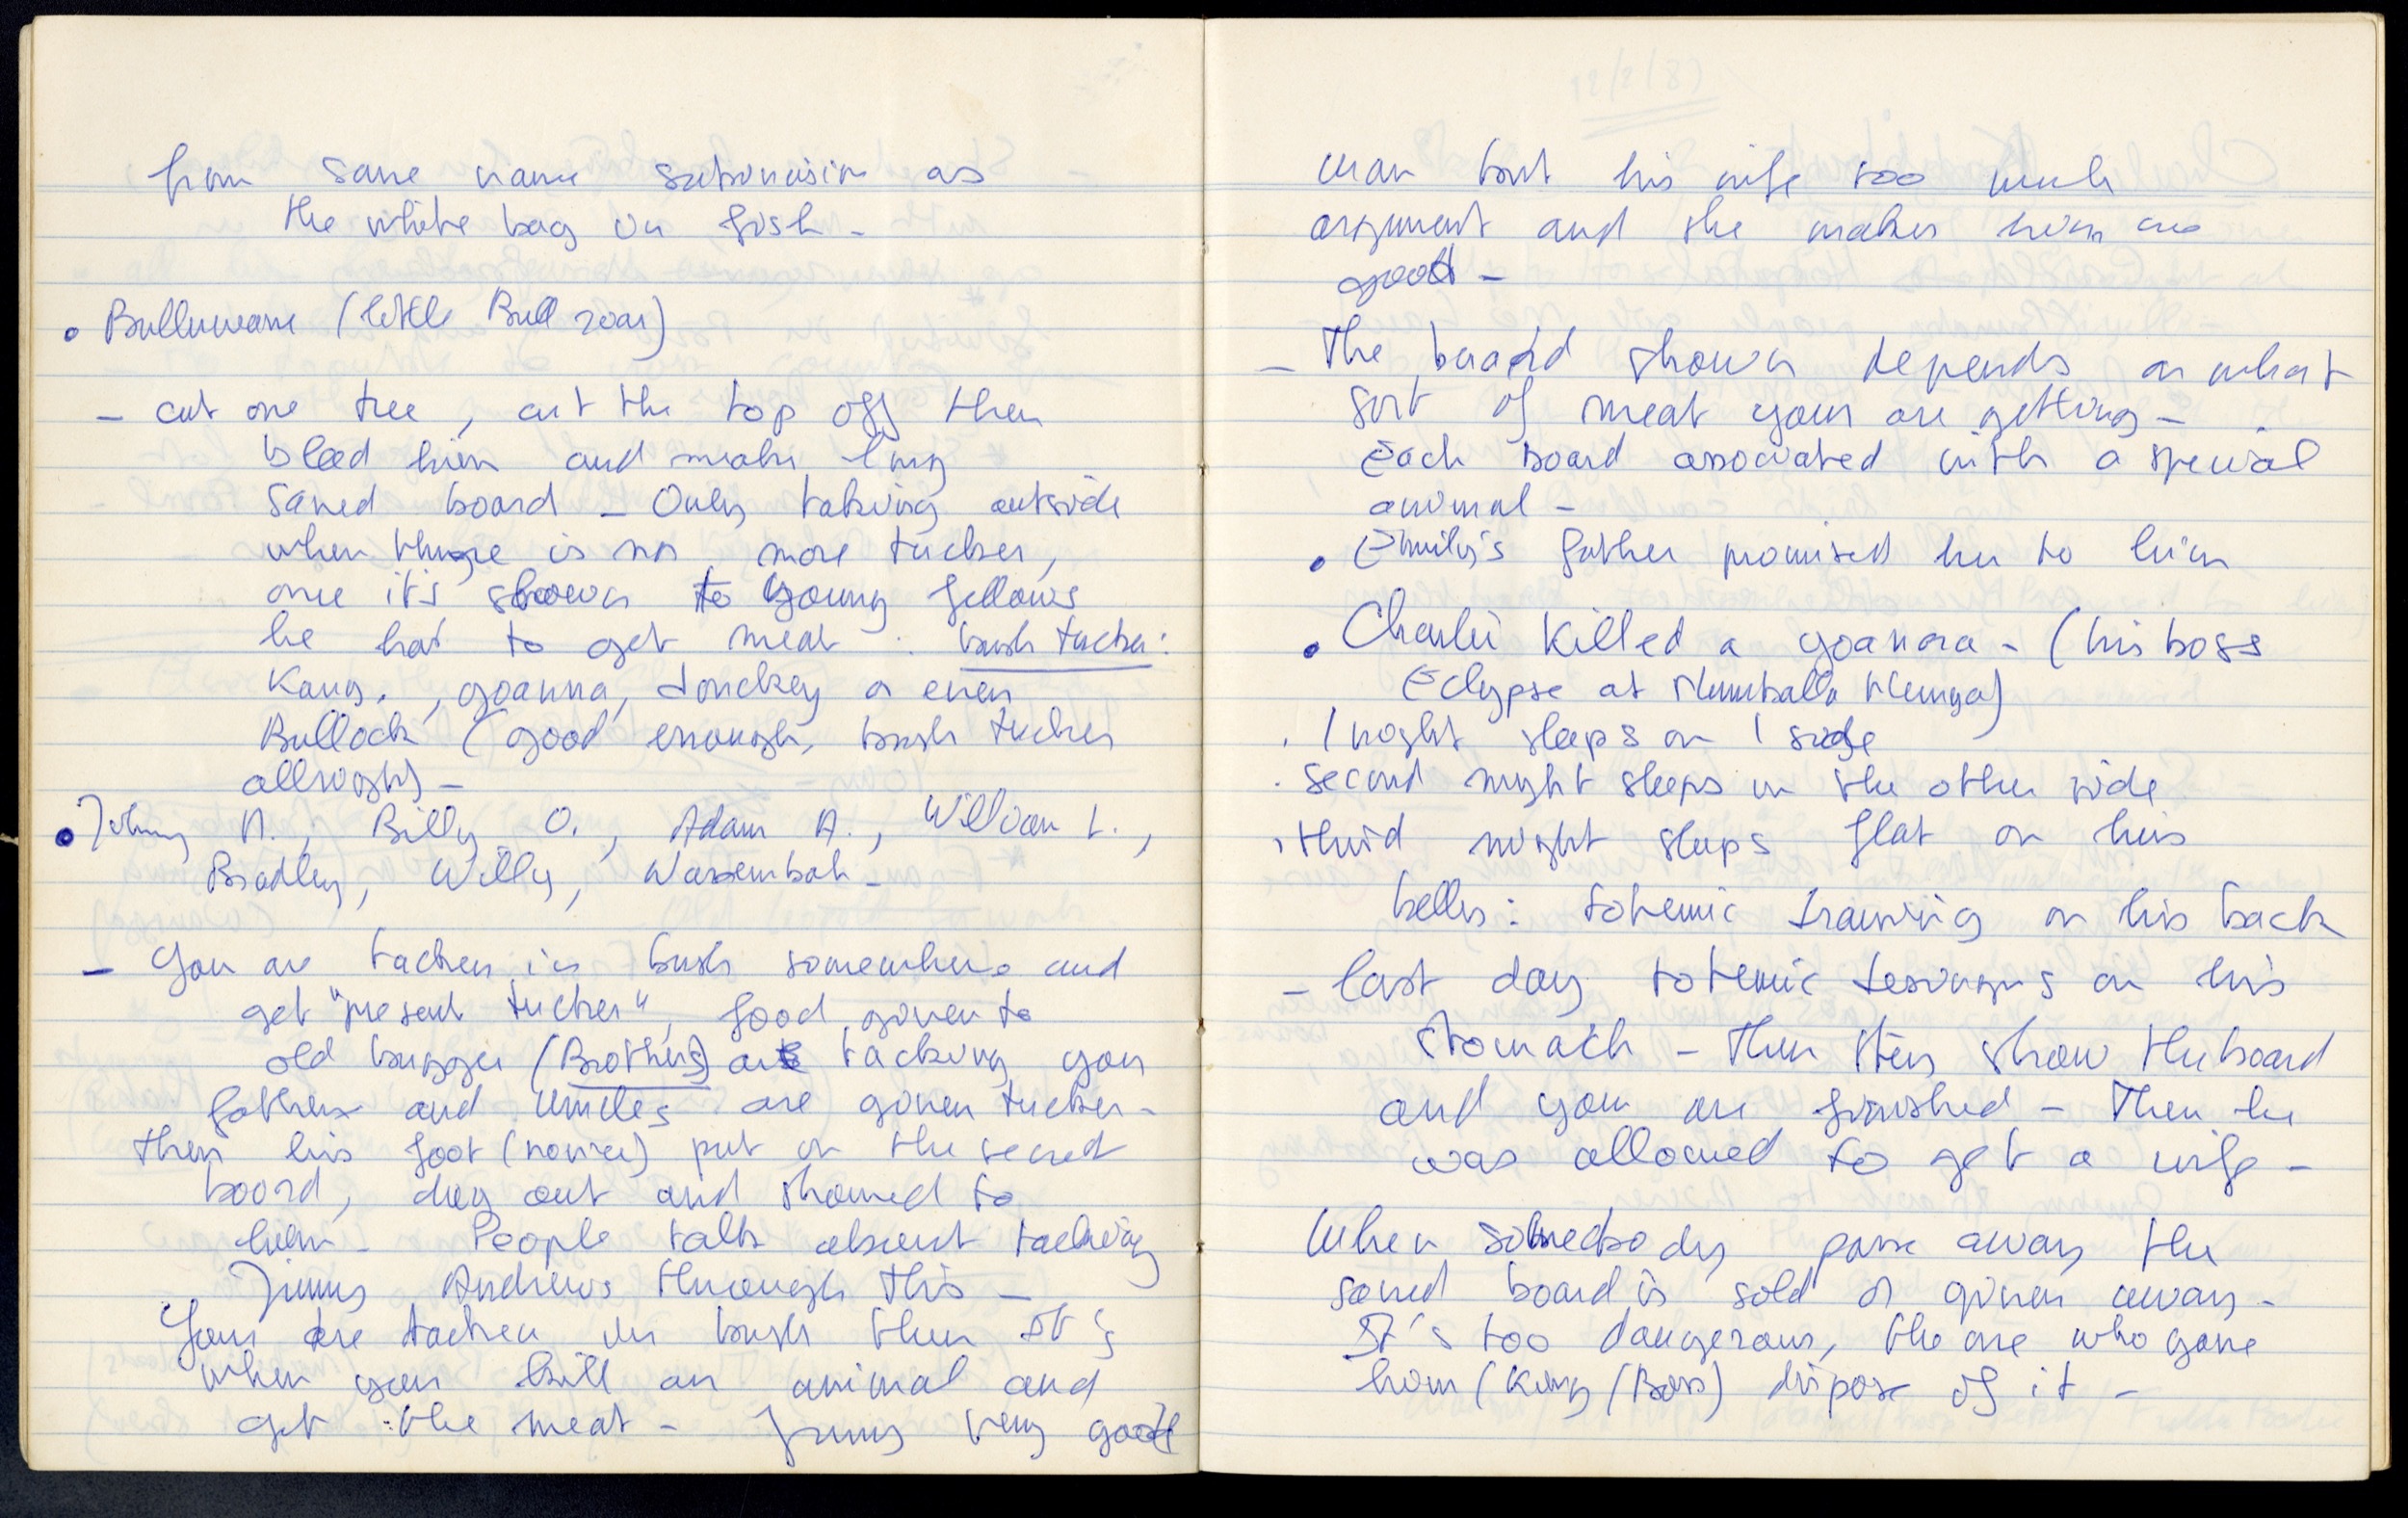 from same name subdivision as
the white bag in fish -
• Bulluwane (little Bull roar)
- cut one tree, cut the top off then
bleed him and make long
saned board - Only taking outside
when there is no more tucker,
once it's shown to young fellows
he has to get meat . bush tucker:
Kang., goanna, donckey or even
Bullock (good enough, bush tucker
allright) -
• Johnny A., Billy O., Adam A., William L.,
Bradley, Willy, Warrembah -
- You are tacken in bush somewhere and
get "present tucker", food given to
old bugger (Brothers) are tacking you
fathers and Uncles are given tucker -
then his foot (novice) put on the secret
board, dug out and showed to
him - People talk about tacking
Jimmy Andrews through this -
You are tacken in bush then It's
when you kill an animal and
get the meat - Jimmy very good
man but his wife too much
argument and she makes him no
good -
- The board shown depends on what
sort of meat your are getting -
Each board associated with a special
animal -
• Emily's father promised her to him
• Charlie killed a goanna - (his boss
Eclypse at
. 1 night sleeps on 1 side
. second night sleeps on the other side
. third night sleeps flat on his
belly: totemic drawing on his back
- last day totemic designs on his
stomach - Then they show the board
and you are finished - Then he
was allowed to get a wife -
When somebody passe away the
saned board is sold or given away -
It's too dangerous, the one who gave
him (King (Boss) dispose of it -